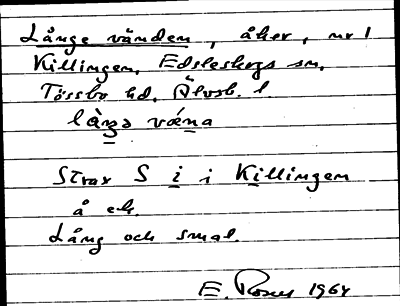 Långe vänden, åker, nr 1
Killingen, Edsleskogs sn,
Tössbo hd, Älvsb. l.
làŋ̲ə vǽn̲a
Strax S i̲ i Ki̲llingen
å ek.
Lång och smal.
E. 1964